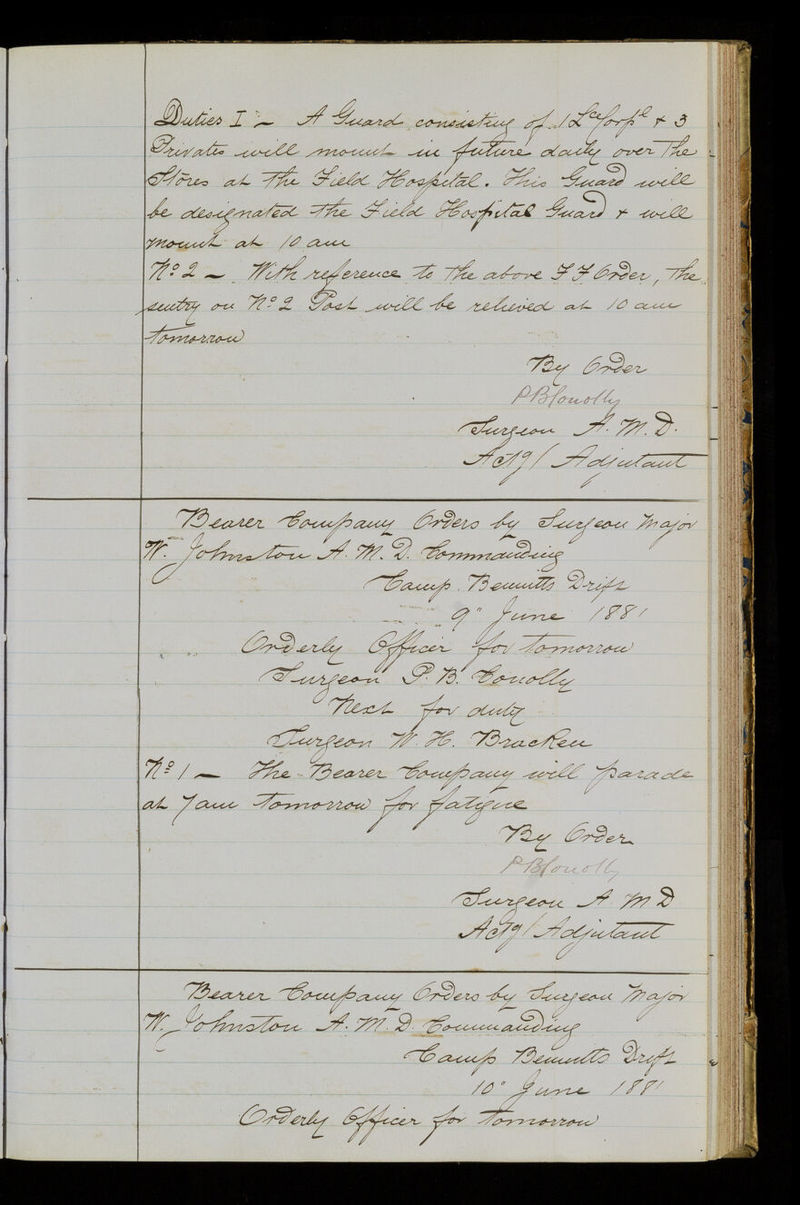 Duties I - A Guard consisting of 1 Lce Corpl + 3
Privates will mount in future daily over the
Stores at the Field Hospital. This Guard will
be designated the Field Hospital Guard + will
mount at 10 am
No 2 - With reference to the above F F Order, the
sentry on No 2 Post will be relieved at 10 am
tomorrow
By Order
P B Conolly
Surgeon A. M. D.
Actg/ Adjutant
Bearer Company Orders by Surgeon Major
W. Johnston A. M. D. Commanding
Camp Bennetts Drift
9" June 1881
Orderly Officer for tomorrow
Surgeon P. B. Conolly
Next for duty
Surgeon W. H. Bracken
No 1 - The Bearer Company will parade
at 7 am tomorrow for fatigue
By Order
P B Conolly
Surgeon A M D
Actg/ Adjutant
Bearer Company Orders by Surgeon Major
W. Johnston A. M. D. Commanding
Camp Bennetts Drift
10" June 1881
Orderly Officer for tomorrow